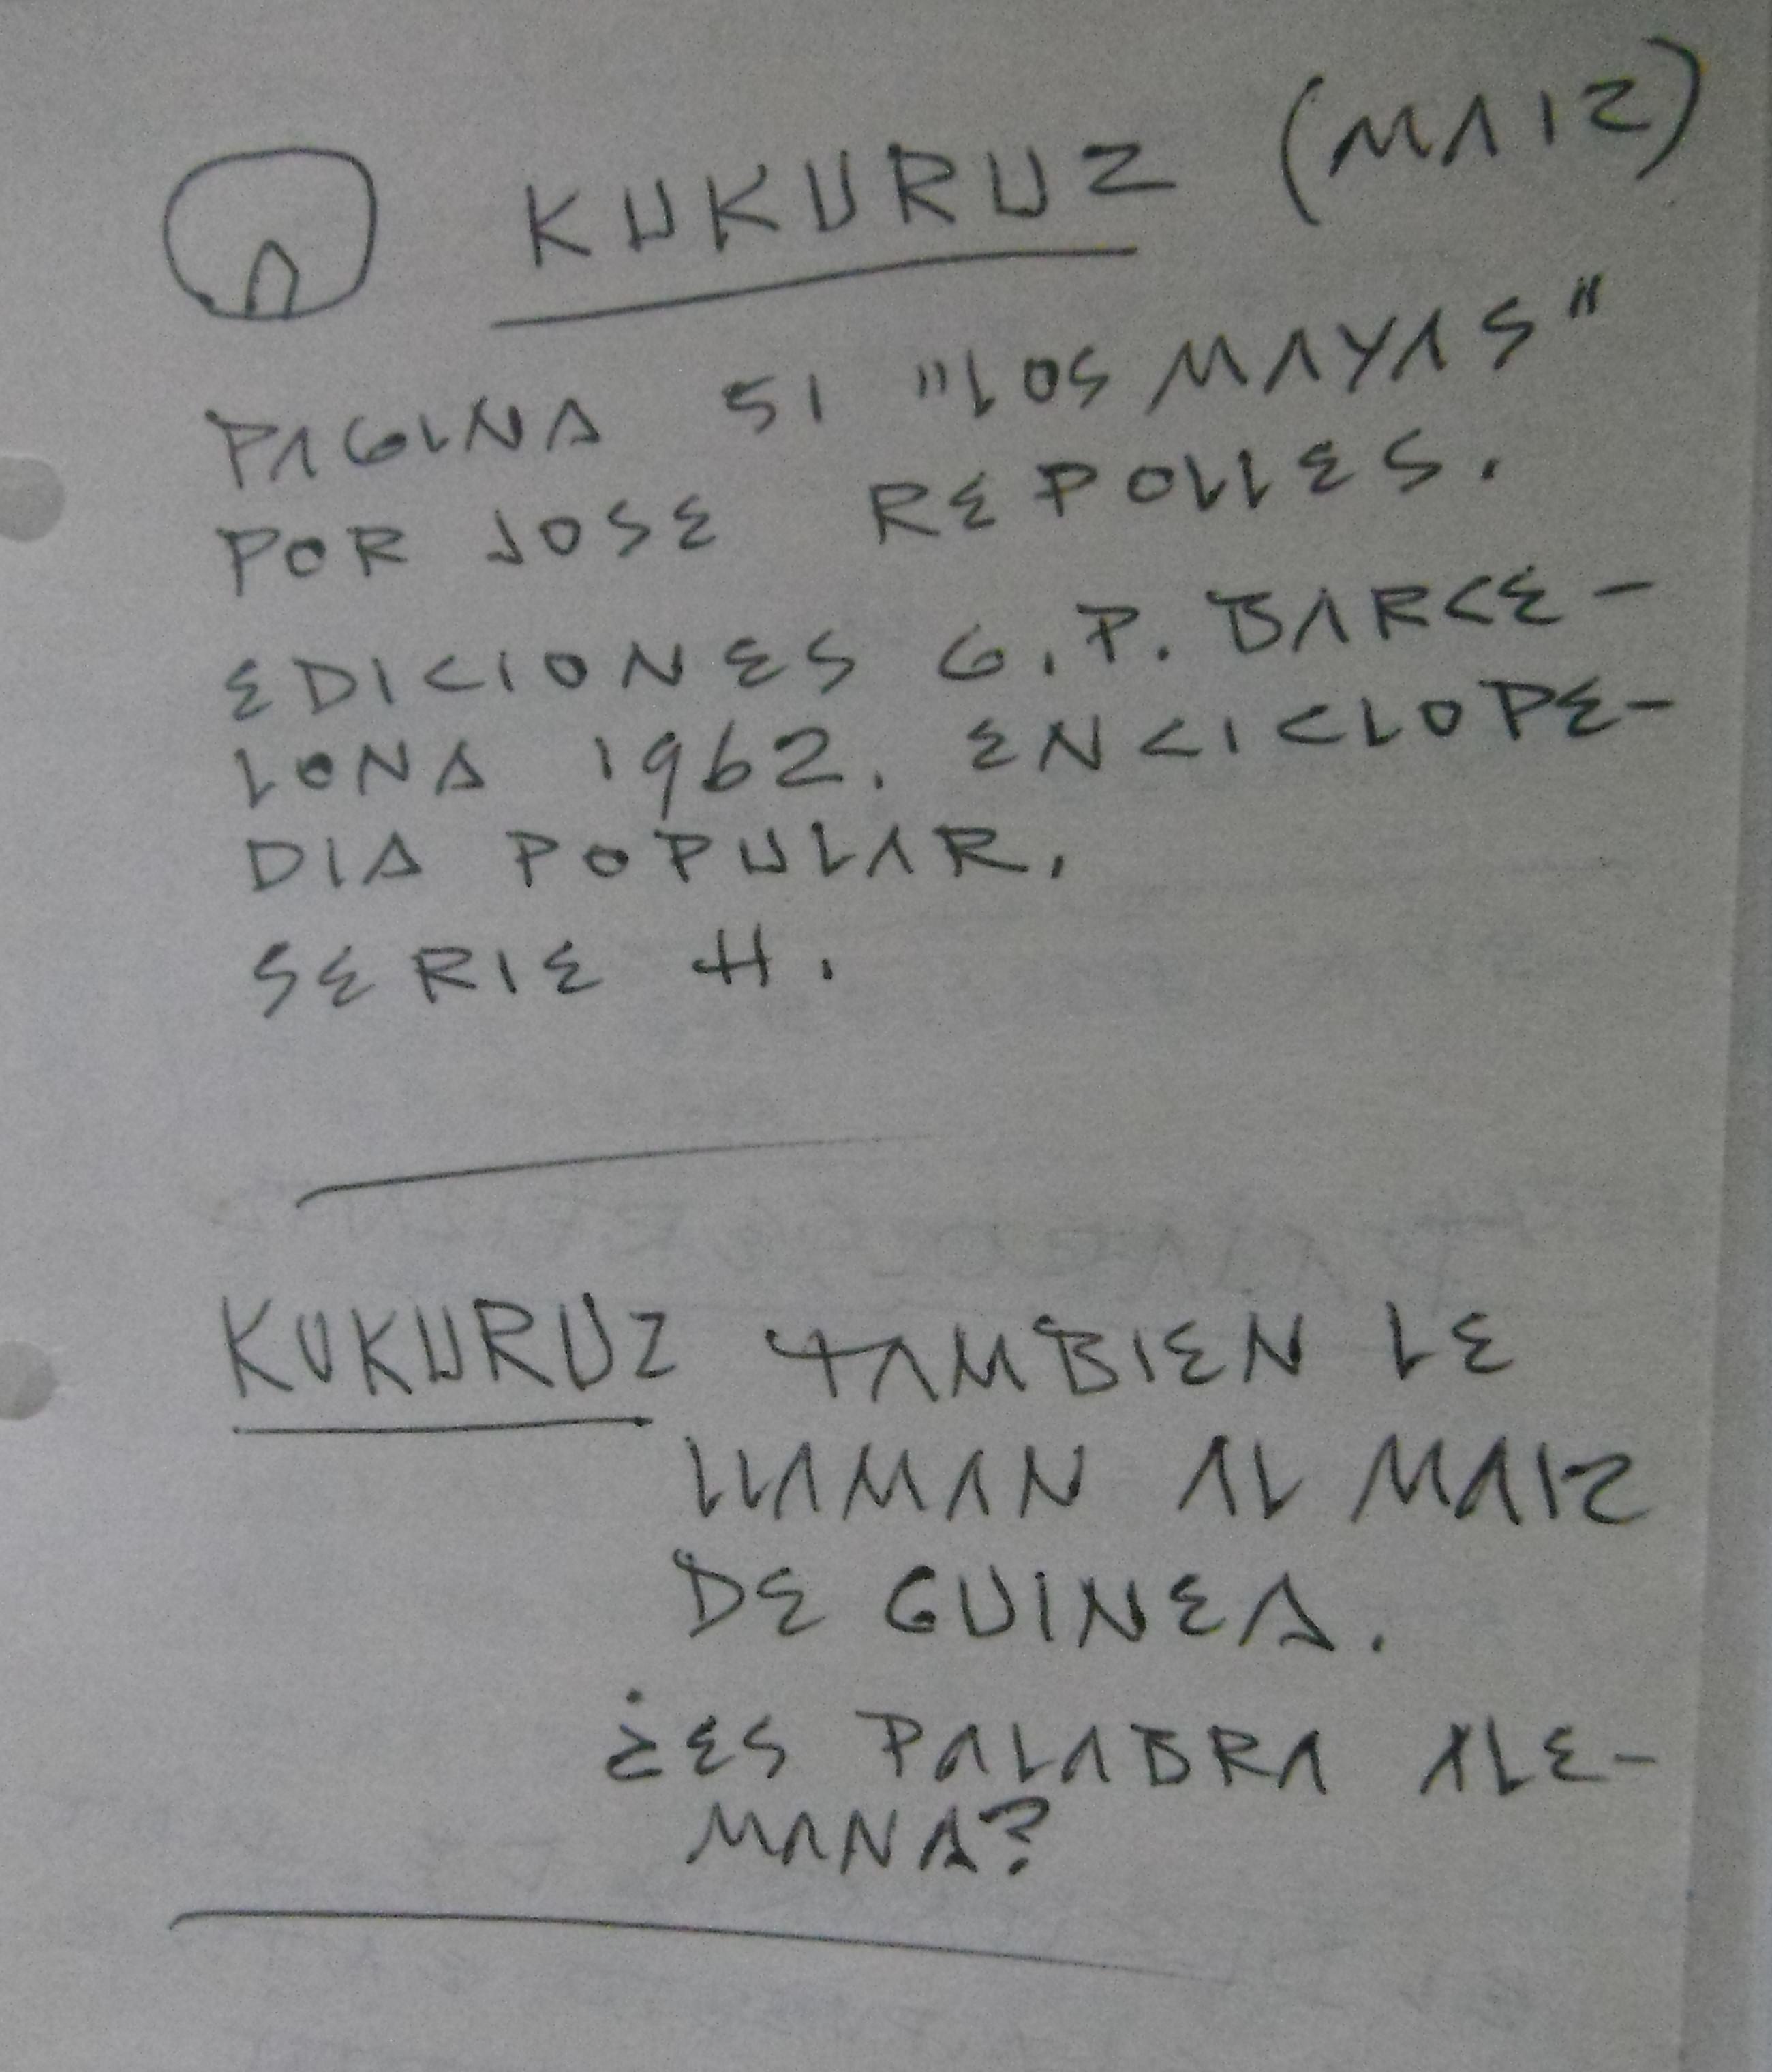 KUKURUZ (MAIZ)
PAGINA 51 "LOS MAYAS"
POR JOSE REPOLLES.
EDICIONES G.P. BARCE-
LONA 1962. ENCICLOPE-
DIA POPULAR.
SERIE H.
KUKURUZ TAMBIEN LE
LLAMAN AL MAIZ
DE GUINEA.
¿ES PALABRA ALE-
MANA?